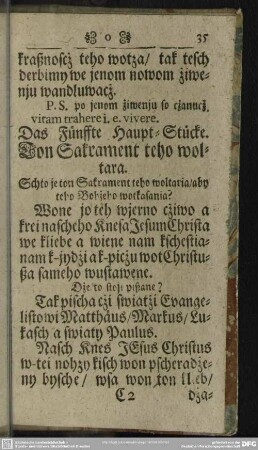 0 35
kraßnoscż teho wotza/ tak tesch
derbimy we jenom nowom żiwe-
nju wandluwacż.
P. S. po jenom żiwenju so cżanucż.
vitam trahere i. e. vivere.
Das Fünffte Haupt-Stücke.
Von Sakrament teho wol-
tara.
Schto je ton Sakrament teho woltaria/aby
teho Bohżeho wotkasania?
Wone jo teh wjerno cżiwo a
krei nascheho Knesa Jesum Christa
we kliebe a wiene nam kschestia-
nam k-jydżi a k-picżu wot Christu-
ßa sameho wustawene.
Dże to stoji pißane?
Tak pischa cżi swiatżi Evange-
listowi Matthäus/Markus/Lu-
kasch a swiaty Paulus.
Nasch Knes JEsus Christus
w-tei nohzy kisch won pscheradże-
ny bysche/ wsa won ton lleb/
C 2 dża-